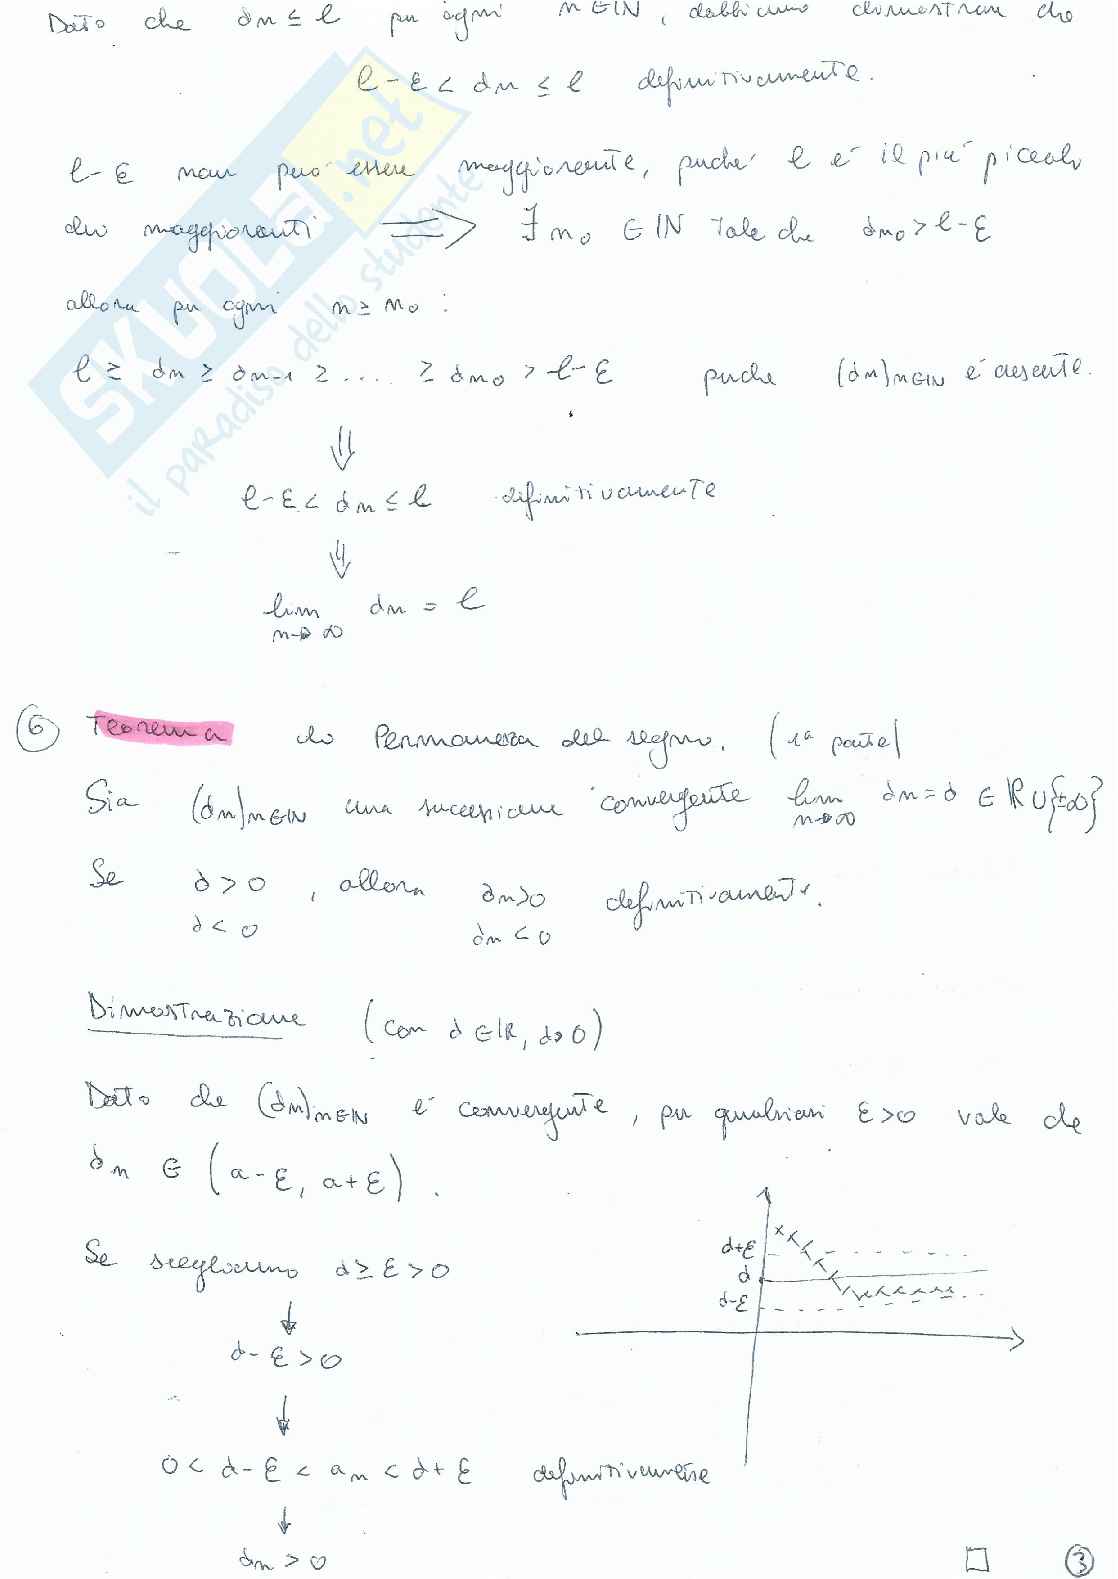 Dato che an ≤ l per ogni n ∈ IN, dobbiamo dimostrare che
l - ε < an ≤ l definitivamente.
l - ε non può essere maggiorante, perché l è il più piccolo
dei maggioranti ⟹ ∃ n₀ ∈ IN Tale che an₀ > l - ε
allora per ogni n ≥ n₀ :
l ≥ an ≥ an-1 ≥ .... ≥ an₀ > l - ε perche (an)n∈IN é crescente.
⇓
l - ε < an ≤ l definitivamente
⇓
lim an = l
n→∞
6 Teorema di Permanenza del segno. (1ª parte)
Sia (an)n∈IN una successione convergente lim an = a ∈ IR ∪ {±∞}
n→∞
Se a > 0 , allora an > 0 definitivamente.
a < 0 an < 0
Dimostrazione (con a ∈ IR, a > 0)
Dato che (an)n∈IN é convergente, per qualsiasi ε > 0 vale che
an ∈ (a - ε, a + ε).
Se scegliamo a ≥ ε > 0
↓
a - ε > 0
↓
0 < a - ε < an < a + ε definitivamente
↓
an > 0
a+ε
a
a-ε
□ 3
SKUOLA.net
il paradiso dello studente